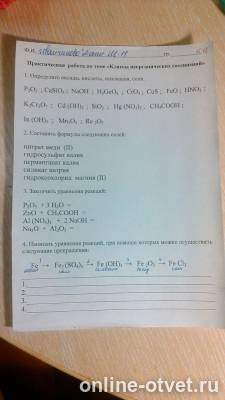 Ф.И.
гр.
Практическая работа по теме «Классы неорганических соединений»
1. Определить оксиды, кислоты, основания, соли.
P₂O₅ ; CuSiO₃ ; NaOH ; H₂GeO₃ ; CrO₃ ; CuS ; FeO ; HNO₃ ;
K₂Cr₂O₇ ; Cd (OH)₂ ; SiO₂ ; Hg (NO₃)₂ ; CH₃COOH ;
In (OH)₃ ; Mn₂O₇ ; Re ₂O₇
2. Составить формулы следующих солей:
нитрат меди (II)
гидросульфат калия
перманганат калия
силикат натрия
гидроксохлорид магния (II)
3. Закончить уравнения реакций:
P₂O₅ + 3 H₂O =
ZnO + CH₃COOH =
Al (NO₃)₃ + 2 NaOH =
Na₂O + Al₂O₃ =
4. Написать уравнения реакций, при помощи которых можно осуществить
следующие превращения:
1 2 3 4
Fe → Fe₂ (SO₄)₃ → Fe (OH)₃ → Fe ₂O₃ → Fe Cl₃
1.
2.
3.
4.
online-otvet.ru